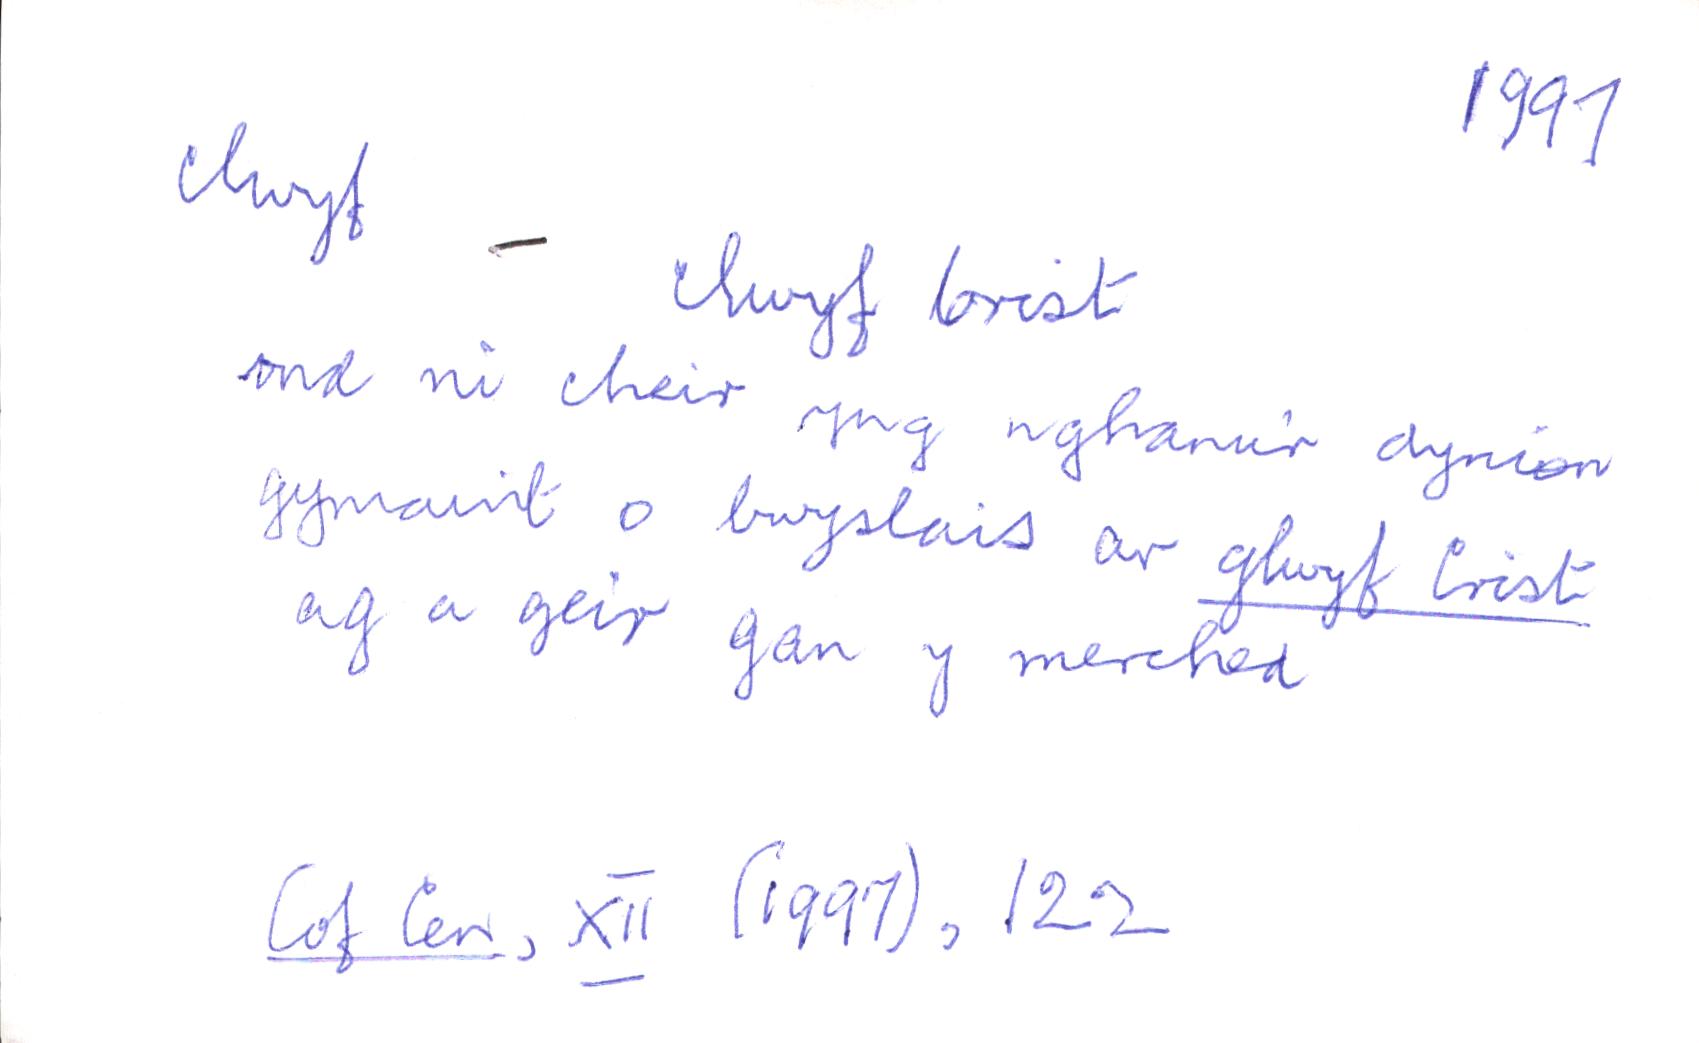 1997
clwyf
— clwyf Crist
ond ni cheir yng nghanu'r dynion
gymaint o bwyslais ar glwyf Crist
ag a geir gan y merched
Cof Cen, XII (1997), 122